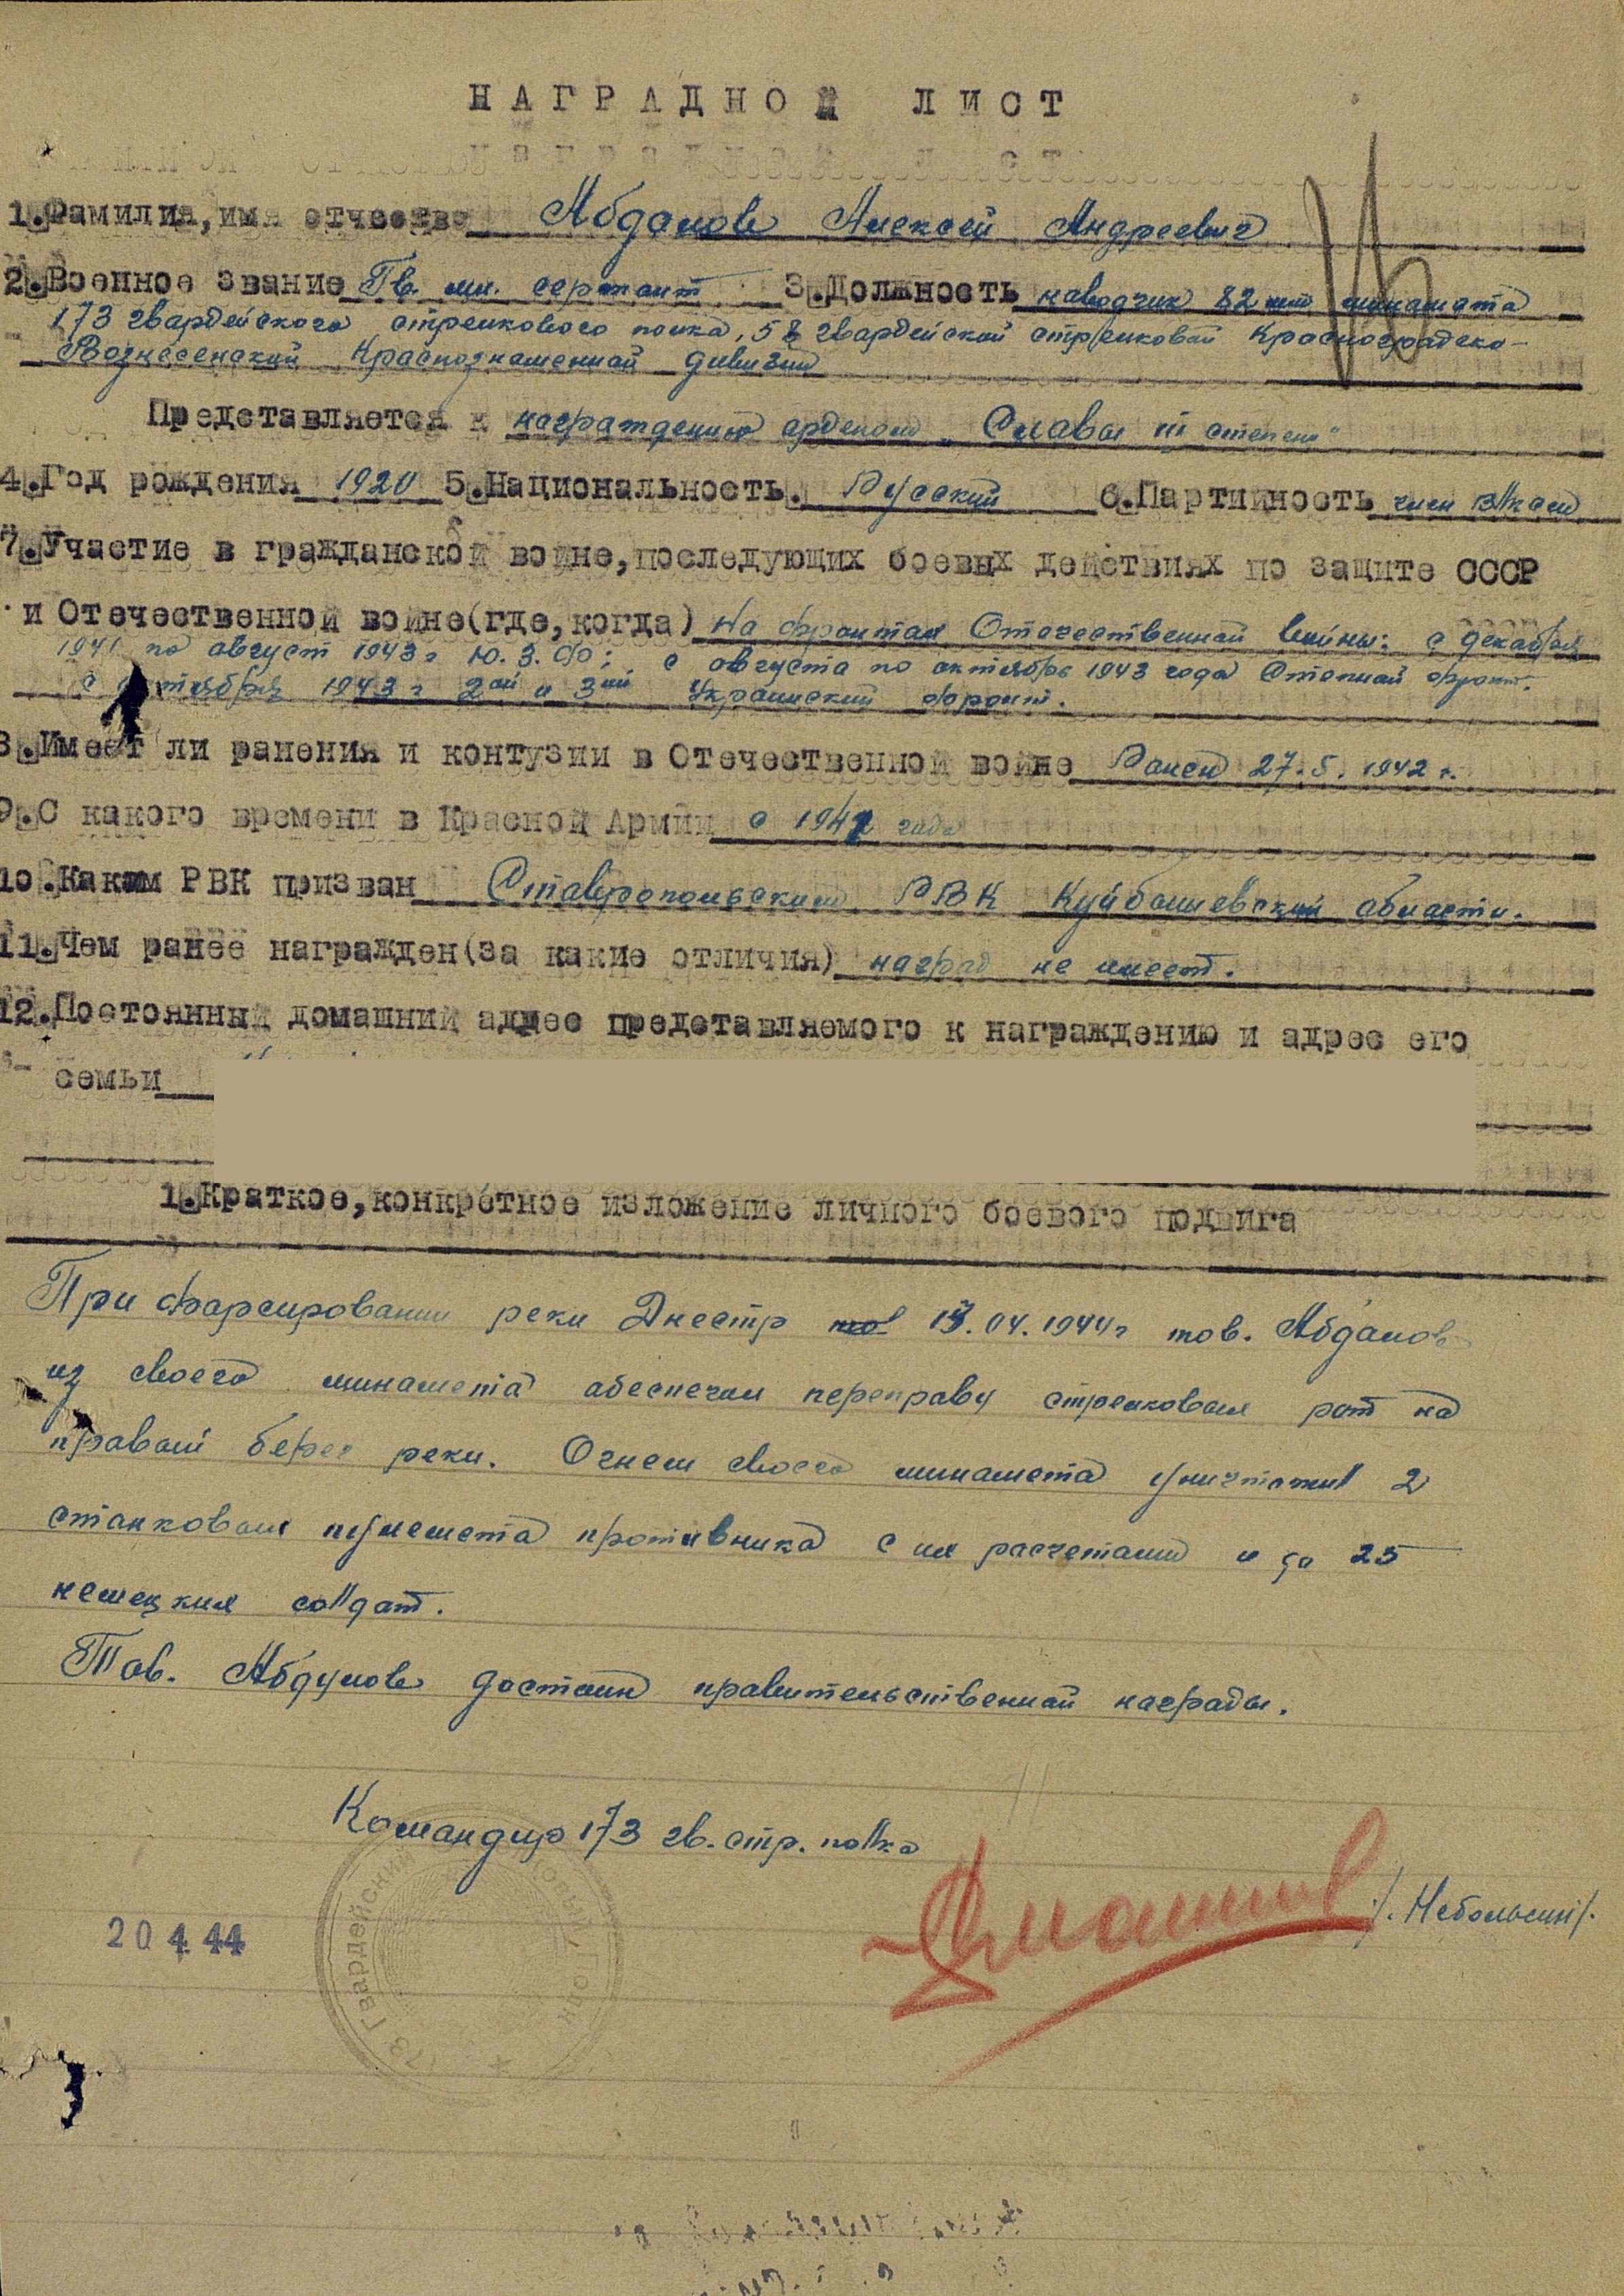 НАГРАДНОЙ ЛИСТ
1. Фамилия, имя отчество Абдалов Алексей Андреевич
2. Военное звание Гв. мл. сержант 3. Должность наводчик 82 мм миномета
173 гвардейского стрелкового полка, 58 гвардейской стрелковой Красноградско-
Вознесенской Краснознаменной дивизии
Представляется к награждению орденом „Славы III степени"
4. Год рождения 1920 5. Национальность. Русский 6. Партийность член ВЛКСМ
7. Участие в гражданской войне, последующих боевых действиях по защите СССР
и Отечественной войне (где, когда) На фронтах Отечественной войны: с декабря
1941 по август 1943 г Ю.З.Ф; с августа по октябрь 1943 года Степной фронт.
с октября 1943 г 2ой и 3ий Украинский фронт.
8. Имеет ли ранения и контузии в Отечественной войне Ранен 27.5.1942 г.
9. С какого времени в Красной Армии с 1941 года
10. Каким РВК призван Ставропольским РВК Куйбышевской области.
11. Чем ранее награжден (за какие отличия) наград не имеет.
12. Постоянный домашний адрес представляемого к награждению и адрес его
семьи
1. Краткое, конкретное изложение личного боевого подвига
При форсировании реки Днестр 13.04.1944г тов. Абдалов
из своего миномета обеспечил переправу стрелковых рот на
правый берег реки. Огнем своего миномета уничтожил 2
станковых пулемета противника с их расчетами и до 25
немецких солдат.
Тов. Абдулов достоин правительственной награды.
Командир 173 гв. стр. полка
/. Небольсин/.
20 4 44
173 Гвардейский Стрелковый Полк